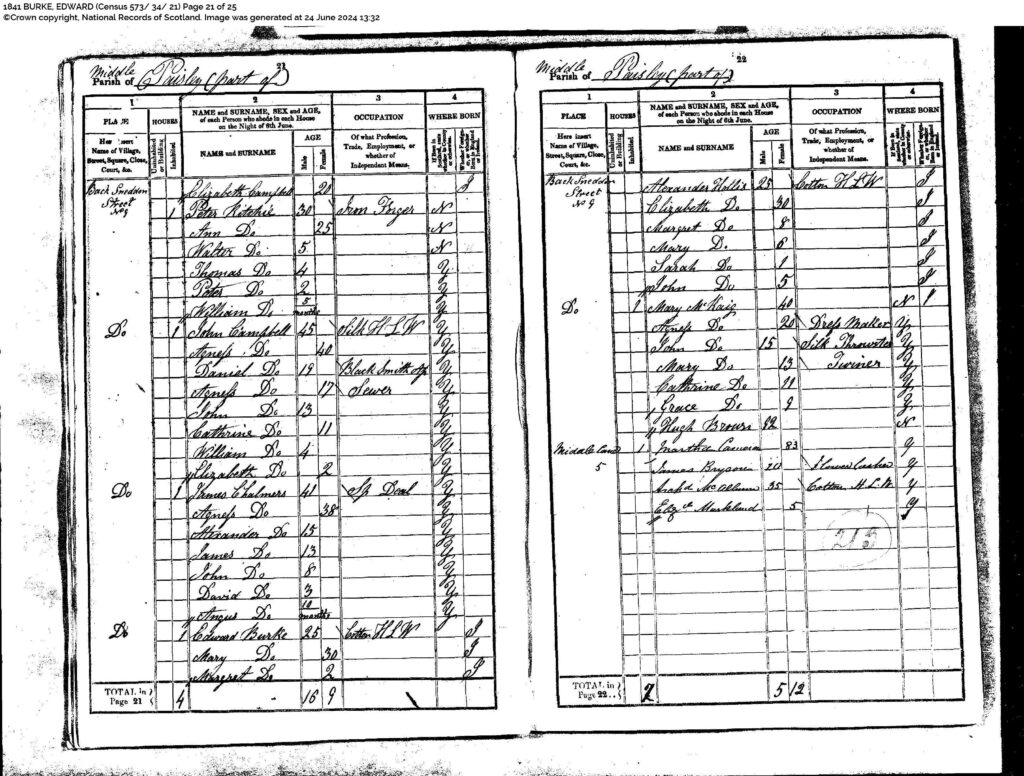 1841 BURKE, EDWARD (Census 573/ 34/ 21) Page 21 of 25
©Crown copyright, National Records of Scotland. Image was generated at 24 June 2024 13:32
21
Middle
Parish of Paisley (part of)
1 2 3 4
PLACE HOUSES NAME and SURNAME, SEX and AGE, of each Person who abode in each House on the Night of 6th June. OCCUPATION WHERE BORN
Here insert Name of Village, Street, Square, Close, Court, &c. Uninhabited or Building Inhabited NAME and SURNAME AGE Male Female Of what Profession, Trade, Employment, or whether of Independent Means.
Back Sneddon Elizabeth Campbell 20 I
Street No 9 1 Peter Ritchie 30 Iron Forger N
Ann Do 25 N
Walter Do 5 N
Thomas Do 4 Y
Peter Do 2 Y
William Do 5 months Y
Do 1 John Campbell 45 Silk H L W Y
Agness Do 40 Y
Daniel Do 19 Black Smith Ap Y
Agness Do 17 Sewer Y
John Do 13 Y
Cathrine Do 11 Y
William Do 4 Y
Elizabeth Do 2 Y
Do 1 James Chalmers 41 Sp Deal Y
Agness Do 38 Y
Alexander Do 15 Y
James Do 13 Y
John Do 8 Y
David Do 3 Y
Angus Do 10 months Y
Do 1 Edward Burke 25 Cotton H L W I
Mary Do 30 I
Margret Do 2 I
TOTAL in Page 21 4 16 9
22
Middle
Parish of Paisley (part of)
1 2 3 4
PLACE HOUSES NAME and SURNAME, SEX and AGE, of each Person who abode in each House on the Night of 6th June. OCCUPATION WHERE BORN
Here insert Name of Village, Street, Square, Close, Court, &c. Uninhabited or Building Inhabited NAME and SURNAME AGE Male Female Of what Profession, Trade, Employment, or whether of Independent Means.
Back Sneddon Alexander 25 Cotton H L W I
Street No 9 Elizabeth Do 30 I
Margret Do 8 I
Mary Do 6 I
Sarah Do 1 I
John Do 5 I
Do 1 Mary McKaig 40 N I
Agness Do 20 Dress Maker Y
John Do 15 Silk Throwster Y
Mary Do 13 Twiner Y
Cathrine Do 11 Y
Grace Do 9 Y
Hugh Brown 82 N
Middle 5 1 Martha Cameron 83 Y
James Bryson 20 Y
Archd 35 Cotton H L W Y
5 Y
213
TOTAL in Page 22 2 5 12